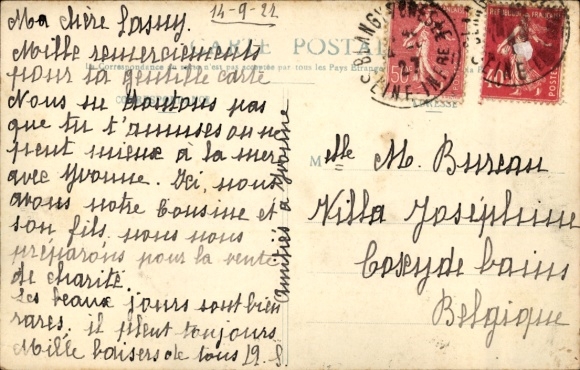 14-9-22
Ma chère Sassy.
Mille remerciements
pour ta gentille carte
Nous ne doutons pas
que tu t'amuses on ne
peut mieux à la mer
avec Yvonne. Ici, nous
avons notre Cousine et
son fils, nous nous
préparons pour la vente
de charité.
Les beaux jours sont bien
rares, il pleut toujours
Mille baisers de tous 19. S.
Amitiés à Yvonne
CARTE POSTALE
La Correspondance au verso n'est pas acceptée par tous les Pays Étrangers
CORRESPONDANCE
ADRESSE
Melle M. Bureau
Villa Joséphine
Coxyde bains
Belgique
BLANGY-BRESLE
SEINE INFRE
50
40
POSTES